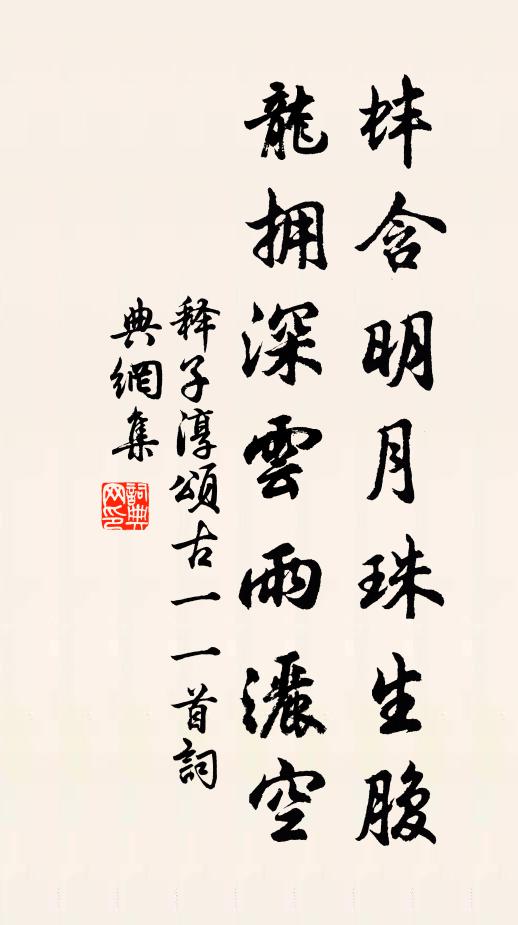 蚌含明月珠生腹
龍拥深雲雨灑空
释子淳頌古一一首詞
典網集
詞典
网印